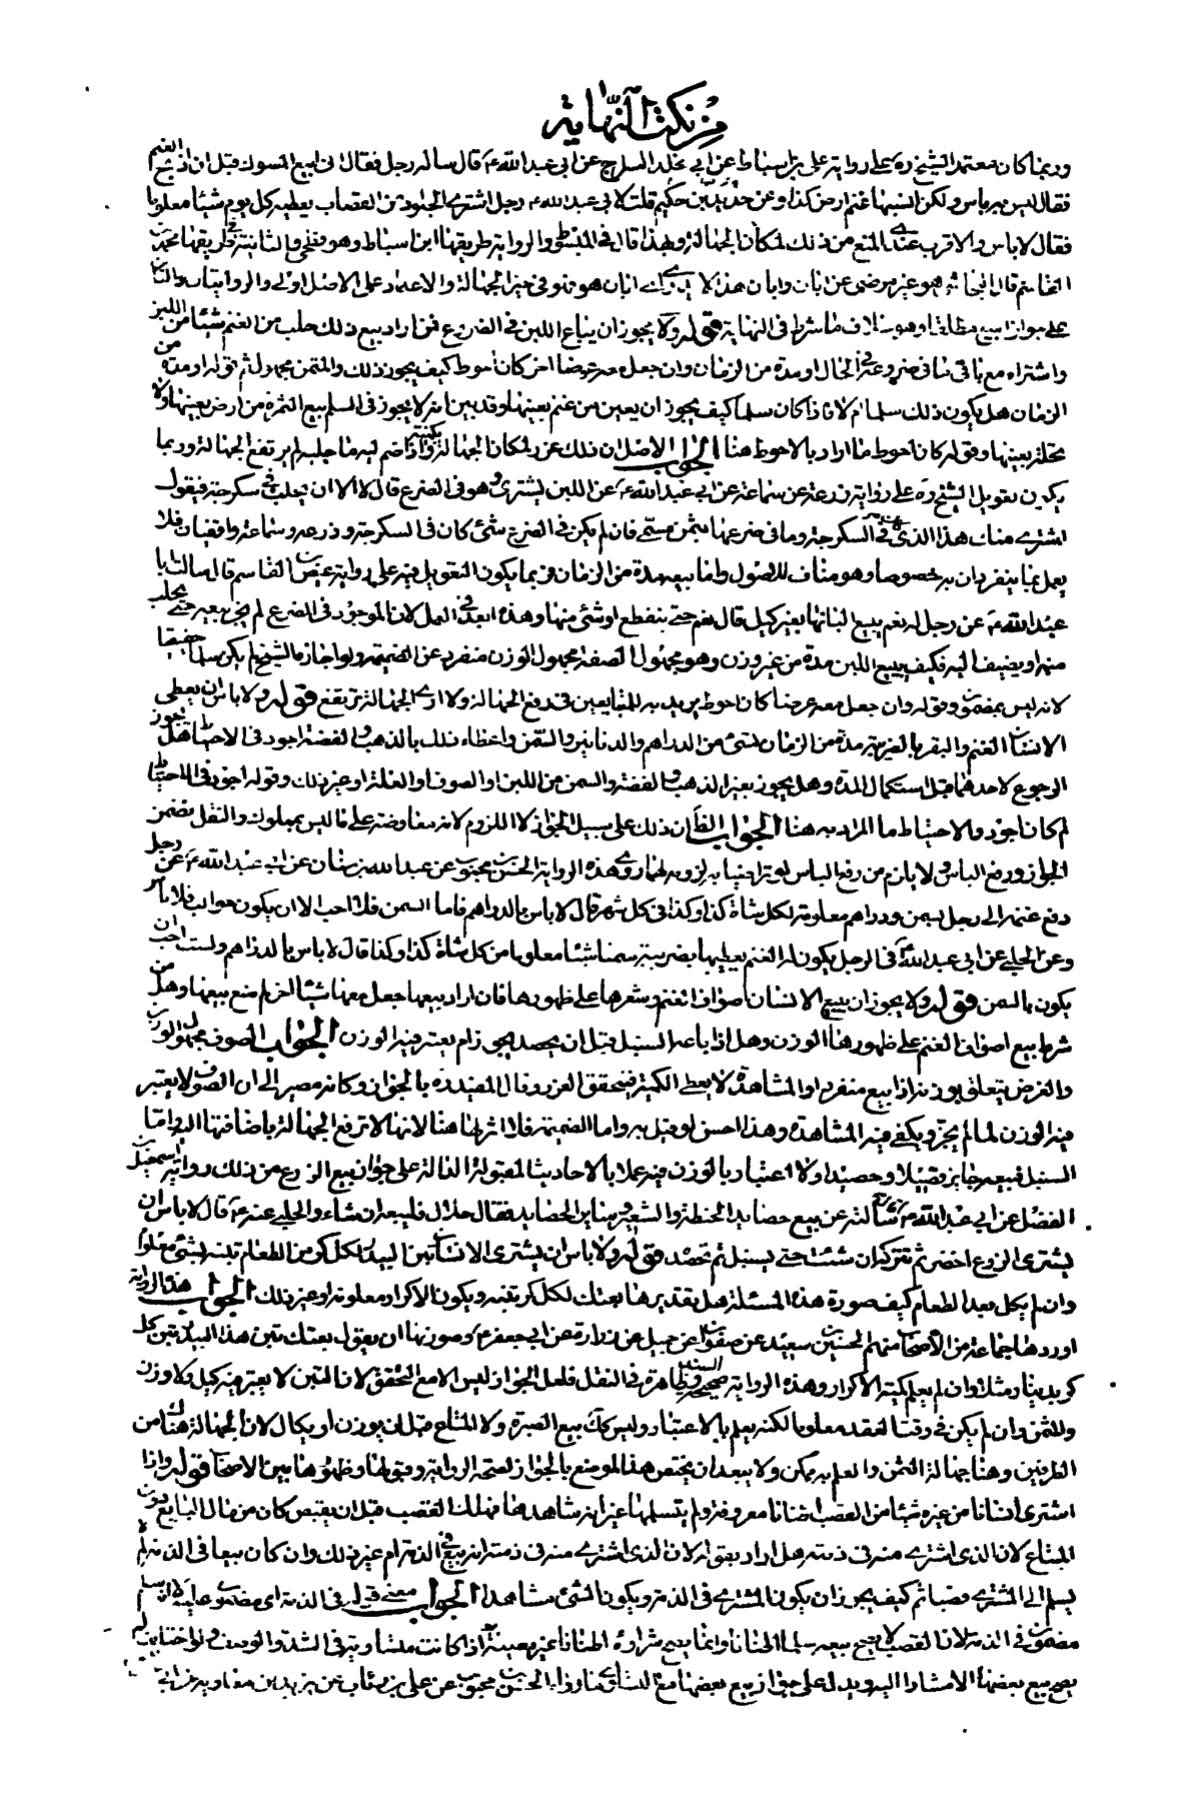 من نكت النهاية
وربما كان معتمد الشيخ ره على رواية علي بن اسباط عن ابي مخلد السراج عن ابي عبد الله ع قال ساله رجل فقال اني ابيع المسوك قبل ان اذبح الغنم
فقال ليس به باس ولكن انسبها غنم ارض كذا وعن حديد بن حكيم قلت لابي عبد الله ع رجل اشترى الجلود من القصاب يعطيه كل يوم شيئا معلوما
فقال لا باس والاقرب عندي المنع من ذلك لمكان الجهالة ولهذا قال في المبسوط والرواية طريقها ابن اسباط وهو فطحي والثانية في طريقها محمد بن
القاسم قال النجاشي هو غير مرضي عن ابان وابان هذا لا ابان هو في حيز الجهالة والاعتماد على الاصل اولى والروايتان دالتان
على جواز البيع مطلقا وهو بخلاف ما شرط في النهاية قوله ولا يجوز ان يباع اللبن في الضرع فمن اراد بيع ذلك حلب من الغنم شيئا من اللبن
واشتراه مع ما بقي في ضروعه في الحال او مدة من الزمان وان جعل معه عرضا اخر كان احوط كيف يجوز ذلك والمثمن مجهول ثم قوله او مدة من
الزمان هل يكون ذلك سلما ام لا فاذا كان سلما كيف يجوز ان يعين من غنم بعينها وقد بين انه لا يجوز في السلم بيع الثمرة من ارض بعينها ولا
نخلة بعينها وقوله كان احوط ما اراد بالاحوط هنا الجواب الاصل ان ذلك غرر لمكان الجهالة واذا ضم اليه ما حلبه لم يرتفع الجهالة وربما
يكون تعويل الشيخ ره على رواية زرعة عن سماعة عن ابي عبد الله ع عن اللبن يشترى وهو في الضرع قال لا الا ان يحلب في سكرجة فيقول
اشترى منك هذا الذي في السكرجة وما في ضرعها بثمن مسمى فان لم يكن في الضرع شئ كان في السكرجة وزرعه وسماعة واقفيان فلا
يعمل بما ينفردان به خصوصا وهو مناف للاصول واما بيعه مدة من الزمان فربما يكون التعويل فيه على رواية عيص بن القاسم قال سالت ابا
عبد الله ع عن رجل له نعم يبيع البانها بغير كيل قال نعم حتى ينقطع او شئ منها وهذه ابعد في العمل لان الموجود في الضرع لم يجز بيعه حتى يحلب
منه او يضيف اليه فكيف يبيع اللبن مدة من غير وزن وهو مجهول الصفة مجهول الوزن منفرد عن الضميمة ولو اجازه الشيخ لم يكن سلما حقيقيا
لانه ليس بمضمون وقوله وان جعل معه عرضا كان احوط يريد به للمتبايعين في دفع الجهالة ولا ارى الجهالة ترتفع قوله ولا باس ان يعطي
الانسان الغنم والبقر بالضريبة مدة من الزمان بشئ من الدراهم والدنانير والسمن واعطاء ذلك بالذهب والفضة اجود في الاحتياط هل يجوز
الرجوع لاحدهما قبل استكمال المدة وهل يجوز بغير الذهب والفضة والسمن من اللبن او الصوف او الغلة او غير ذلك وقوله اجود في الاحتياط
لم كان اجود والاحتياط ما المراد به هنا الجواب الظ ان ذلك على سبيل الجواز لا اللزوم لانه معاوضة على ما ليس بمملوك والنقل يضمن
الجواز ورفع الباس ولا يلزم من رفع الباس لو تراضيا به لزومه لهما روى هذه الرواية الحسن بن محبوب عن عبد الله بن سنان عن ابي عبد الله ع عن رجل
دفع غنمه الى رجل بسمن ودراهم معلومة لكل شاة كذا وكذا في كل شهر قال لا باس بالدراهم فاما السمن فلا احب الا ان يكون حوالب فلا باس
وعن الحلبي عن ابي عبد الله ع في الرجل يكون له الغنم يعطيها بضريبة سمنا شيئا معلوما من كل شاة كذا وكذا قال لا باس بالدراهم ولست احب ان
يكون بالسمن قوله ولا يجوز ان يبيع الانسان اصواف الغنم وشعرها على ظهورها فان اراد بيعها جعل معها شيئا اخر لم منع بيعها وهل من
شرط بيع اصواف الغنم على ظهورها الوزن وهل اذا باع السنبل قبل ان يحصد يجوز ام يعتبر فيه الوزن الجواب الصوف مجهول الوزن
والغرض يتعلق بوزنه اذا بيع منفردا والمشاهدة لا يعطي الكمية فيتحقق الغرر وقال المفيد ره بالجواز وكانه مصير الى ان الصوف لا يعتبر
فيه الوزن لما لم يجز ويكفي فيه المشاهدة وهذا حسن لو قيل به واما الضميمة فلا اثر لها هنا لانها لا ترفع الجهالة باضافتها اليه واما
السنبل فبيعه جايز فصيلا وحصيدا ولا اعتبار بالوزن فيه عملا بالاحاديث المقبولة الدالة على جواز بيع الزرع من ذلك رواية اسمعيل بن
الفضل عن ابي عبد الله ع سالته عن بيع حصايد الحنطة والشعير وساير الحصايد فقال حلال فليبعه ان شاء والحلبي عنه ع قال لا باس ان
يشتري الزرع اخضر ثم تتركه ان شئت حتى يسنبل ثم تحصد قوله ولا باس ان يشتري الانسان تبن البيدر لكل كر من الطعام تبنه بشئ معلوم
وان لم يكل بعد الطعام كيف صورة هذه المسئلة هل تقديرها بعتك لكل كر تبنه ويكون الاكرار معلومة او غير ذلك الجواب هذه الرواية
اوردها جماعة من الاصحاب منهم الحسين بن سعيد عن صفوان عن جميل عن زرارة عن ابي جعفر ع وصورتها ان يقول بعتك تبن هذا البيدر تبن كل
كر بدينار مثلا وان لم يعلم كمية الاكرار وهذه الرواية صحيحة السند وظاهرة في النقل فلعل الجواز ليس الا مع التحقق لان التبن لا يعتبر فيه كيل ولا وزن
والثمن وان لم يكن في وقت العقد معلوما لكنه يعلم بالاعتبار وليس كك بيع الصبرة ولا المتاع قبل ان يوزن او يكال لان الجهالة هناك من
الطرفين وهنا جهالة الثمن والعلم به ممكن ولا يبعد ان يختص هذا الموضع بالجواز لصحة الرواية وقبولها وظهورها بين الاصحاب قوله واذا
اشترى انسان من غيره شيئا من القصب اطنانا معروفة ولم يتسلمها غير انه شاهدها فهلك القصب قبل ان يقبض كان من مال البايع دون
المبتاع لان الذي اشترى منه في ذمته هل اراد بقوله لان الذي اشترى منه في ذمته انه بيع في الذمة ام غير ذلك وان كان بيعا في الذمة لم لا
يسلم الى المشتري قصبا ثم كيف يجوز ان يكون المشترى في الذمة ويكون الشئ مشاهدا الجواب معنى قوله في الذمة اى مضمون عليه لا انه سلم
مضمون في الذمة لان القصب لا يصح بيعه سلما اطنانا وانما يصح شراؤه اطنانا غير معينة اذا كانت متساوية في الشدة والوصف
يصح بيع بعضها الا مشارا اليه ويدل على جواز بيع بعضها مع التساوي ما رواه الحسن بن محبوب عن علي بن رئاب عن بريد بن معاوية عن ابي